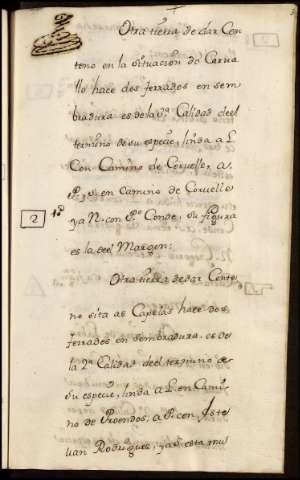 Otra tierra de dar Cen
teno en la situacion do Corva
llo hace dos ferrados en sem
bradura es de la 2ª Calidad deel
termino de su especie, linda a L
Con Camino de Corvelle, a
P. y S. en Camino de Corvelle
y a N. con Conde, su figura
es la deel Margen:
2
Otra tierra de dar Cente
no sita as Capelas hace dos
ferrados en sembradura es de
la 2ª Calidad deel termino de
su especie, linda a L. en Cami
no de Roendos, a P. con Iste
van Rodrigues, y a S. esta mu